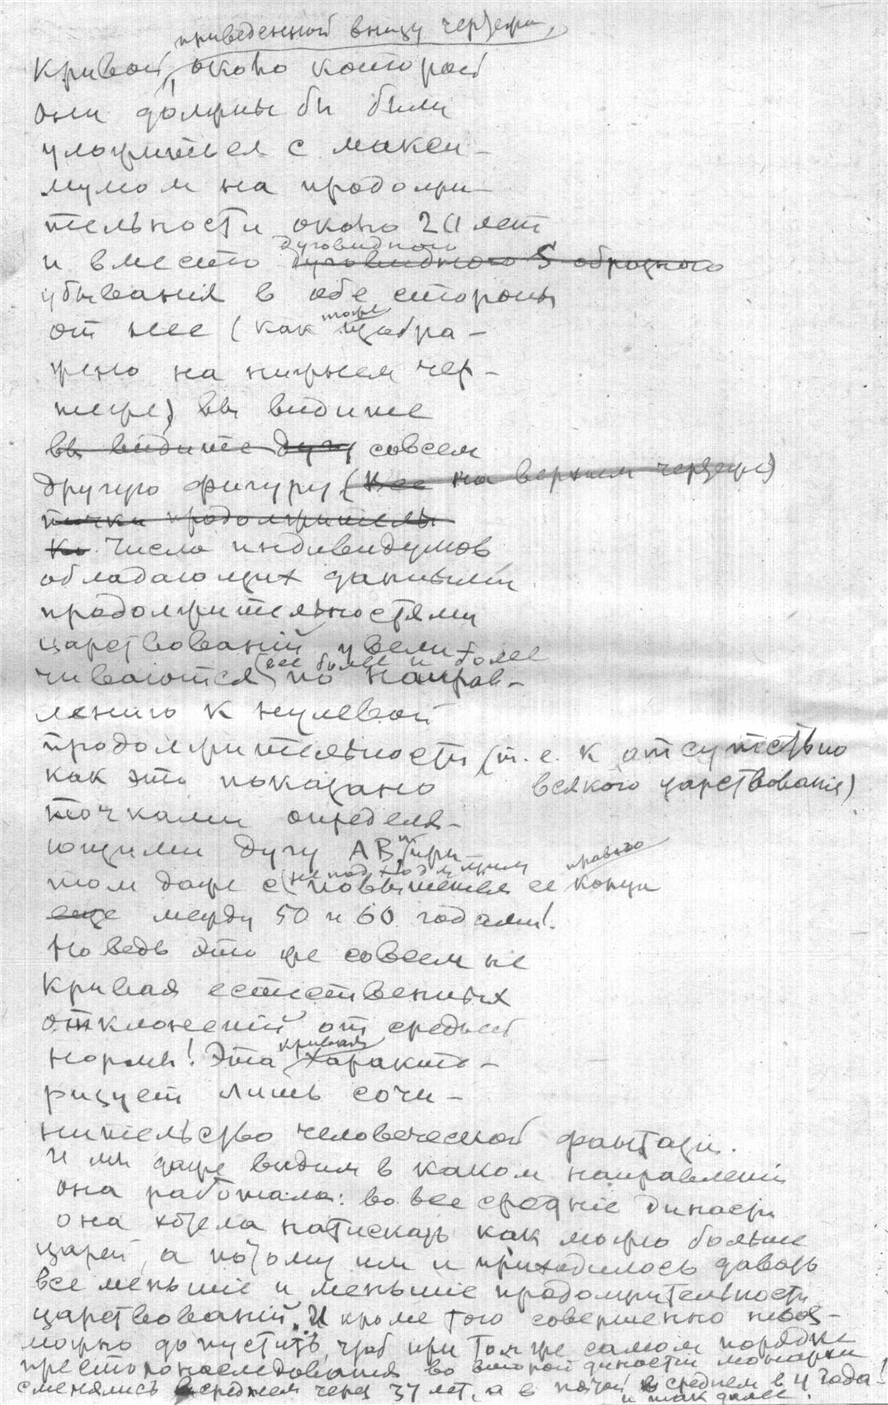 приведенной внизу чертежа,
Кривой, около которой
они должны бы были
уложиться с макси-
мумом на продолжи-
тельности около 20 лет
дуговидного
и вместо дуговидного S образного
убывания в обе стороны
от нее (как тоже изобра-
жено на нижнем чер-
теже) вы видите
вы видите дугу совсем
другую фигуру (все на верхнем чертеже)
точки продолжитель
Числа индивидумов
обладающих данными
продолжительностями
царствований увели-
все более и более
чиваются по направ-
лению к нулевой
продолжительности (т. е. к отсутствию
всякого царствования)
как это показано
точками определя-
ющими дугу АВ, при
правого
том даже с повышением ее конца
еще между 50 и 60 годами!
Но ведь это же совсем не
кривая естественных
отклонений от средней
кривая
нормы! Эта характе-
ризует лишь сочи-
нительство человеческой фантазіи.
И мы даже видим в каком направленіи
она работала: во все средніе династіи
она хотела натискать как можно больше
царей, а потому им и приходилось давать
все меньшіе и меньшіе продолжительности
царствований. И кроме того совершенно невоз-
можно допустить, чтоб при том же самом порядке
престолонаследования во второй династіи монархи
сменялись в среднем через 37 лет, а в пятой в среднем в 4 года!
и так далее.